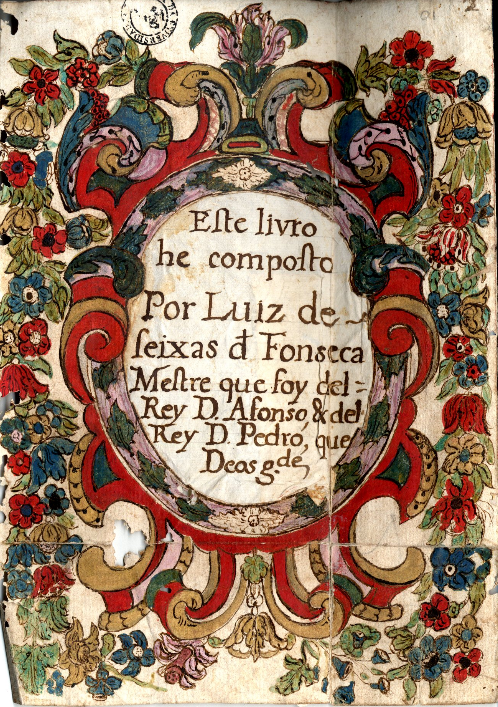 Eſte livro
he compoſto
Por Luiz de
ſeixas d Fonseca
Meſtre que foy del=
Rey D. Afonso, & del
Rey D. Pedro, que
Deos g.de